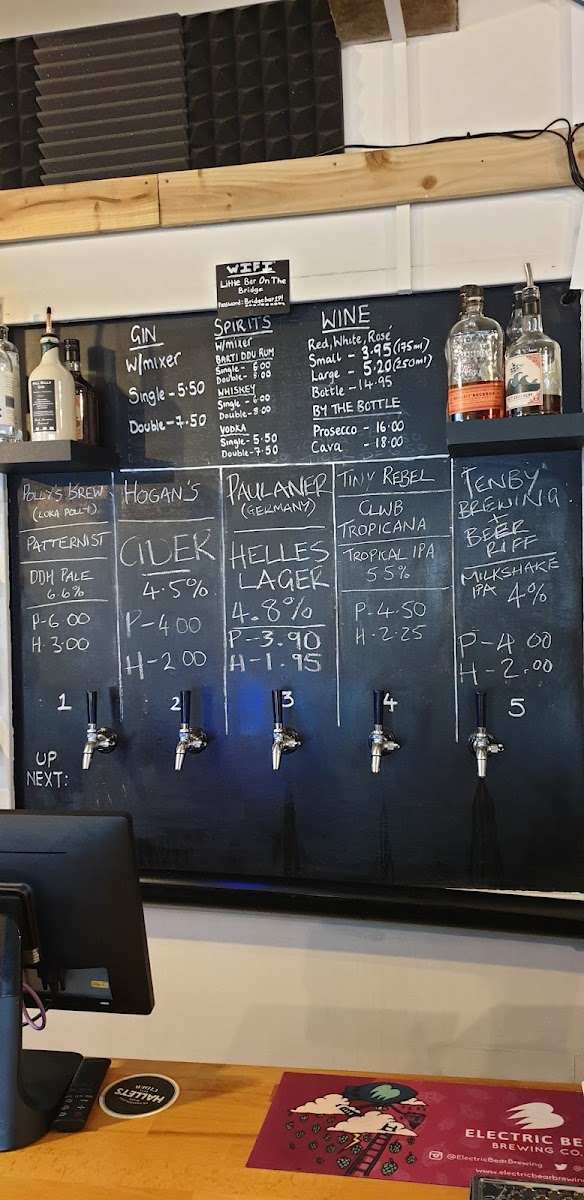 WIFI
Little Bar On The
Bridge
Password: Bridgebar19!
GIN
W/mixer
Single - 5.50
Double - 7.50
SPIRITS
W/mixer
BARTI DDU RUM
Single - 6.00
Double - 8.00
WHISKEY
Single - 6.00
Double - 8.00
VODKA
Single - 5.50
Double - 7.50
WINE
Red, White, Rosé
Small - 3.95 (175ml)
Large - 5.20 (250ml)
Bottle - 14.95
BY THE BOTTLE
Prosecco - 16.00
Cava - 18.00
POLLY'S BREW
(LOKA POLLY)
PATTERNIST
DDH PALE
6.6%
P-6.00
H-3.00
1
HOGAN'S
CIDER
4.5%
P-4.00
H-2.00
2
PAULANER
(GERMANY)
HELLES
LAGER
4.8%
P-3.90
H-1.95
3
TINY REBEL
CLWB
TROPICANA
TROPICAL IPA
5.5%
P-4.50
H-2.25
4
TENBY
BREWING
+
BEER
RIFF
MILKSHAKE
IPA 4%
P-4.00
H-2.00
5
UP
NEXT:
HALLETS
CIDER
ELECTRIC BE
BREWING CO.
@ElectricBearBrewing
www.electricbearbrewing